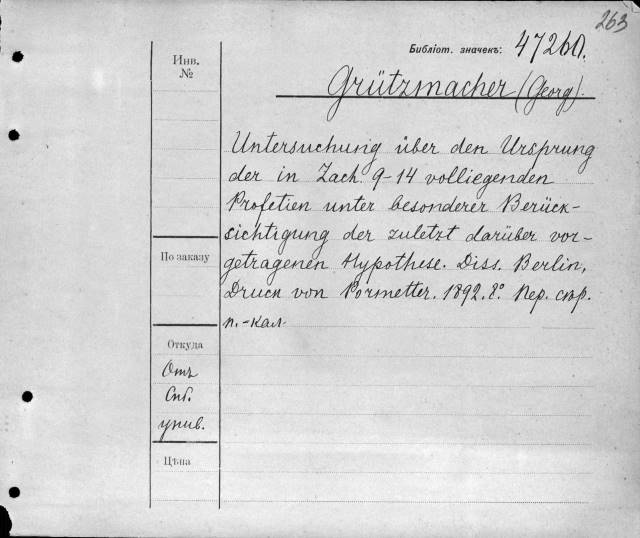 263
Библіот. значекъ: 47260.
Инв.
№
Grützmacher (Georg).
Untersuchung über den Ursprung
der in Zach. 9-14 volliegenden
Profetien unter besonderer Berück-
sichtigung der zuletzt darüber vor-
По заказу
getragenen Hypothese. Diss. Berlin,
Druck von Pormetter. 1892. 8° Пер. сюр.
п.-кал.
Откуда
Отъ
Спб.
унив.
Цѣна